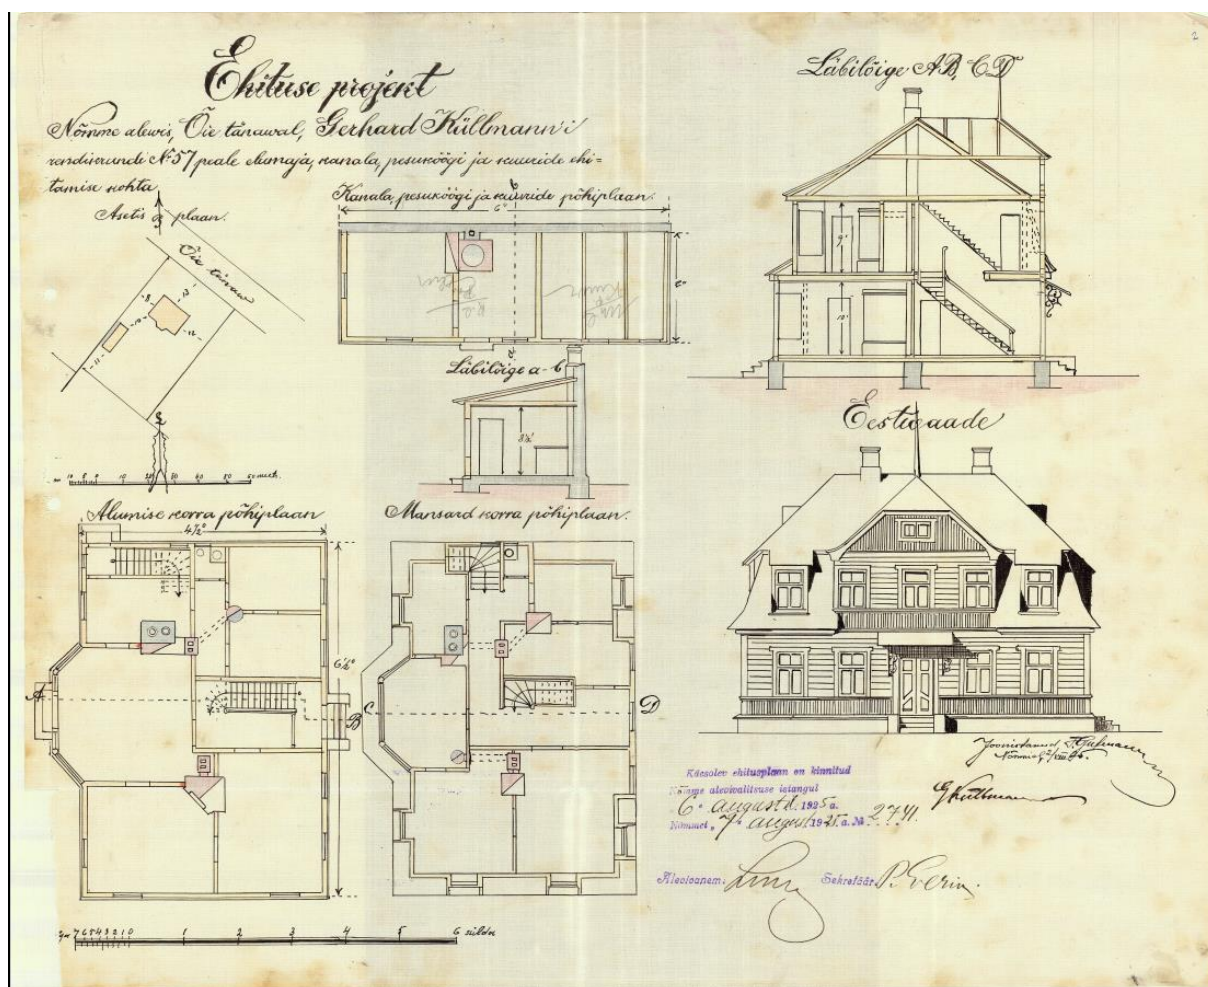 2
Ehituse projekt
Nõmme alewis, Õie tänawal, Gerhard Küllmann'i
rendikrundi №57 peale elumaja, kanala, pesuköögi ja kuuride ehi=
tamise kohta
Asetis plaan.
Õie tänaw
8
13
10
12
11
10 5 0 10 20 30 40 50 60 meet.
Kanala, pesuköögi ja kuuride põhiplaan.
b
6°
2°
a
Läbilõige a-b
8½'
Läbilõige AB, CD
9'
10'
Eestwaade
Alumise korra põhiplaan
4½°
6½°
A
B
Mansard korra põhiplaan.
C
D
7 6 5 4 3 2 1 0 1 2 3 4 5 6 sülda
Joonistanud
Nõmmel
G Küllmann
Käesolev ehitusplaan on kinnitud
Nõmme alevivalitsuse istangul
"6" augustil 1925 a.
Nõmmel, "7" august 1925 a. № 2741.
Alevivanem:
Sekretäär: P. Everin.